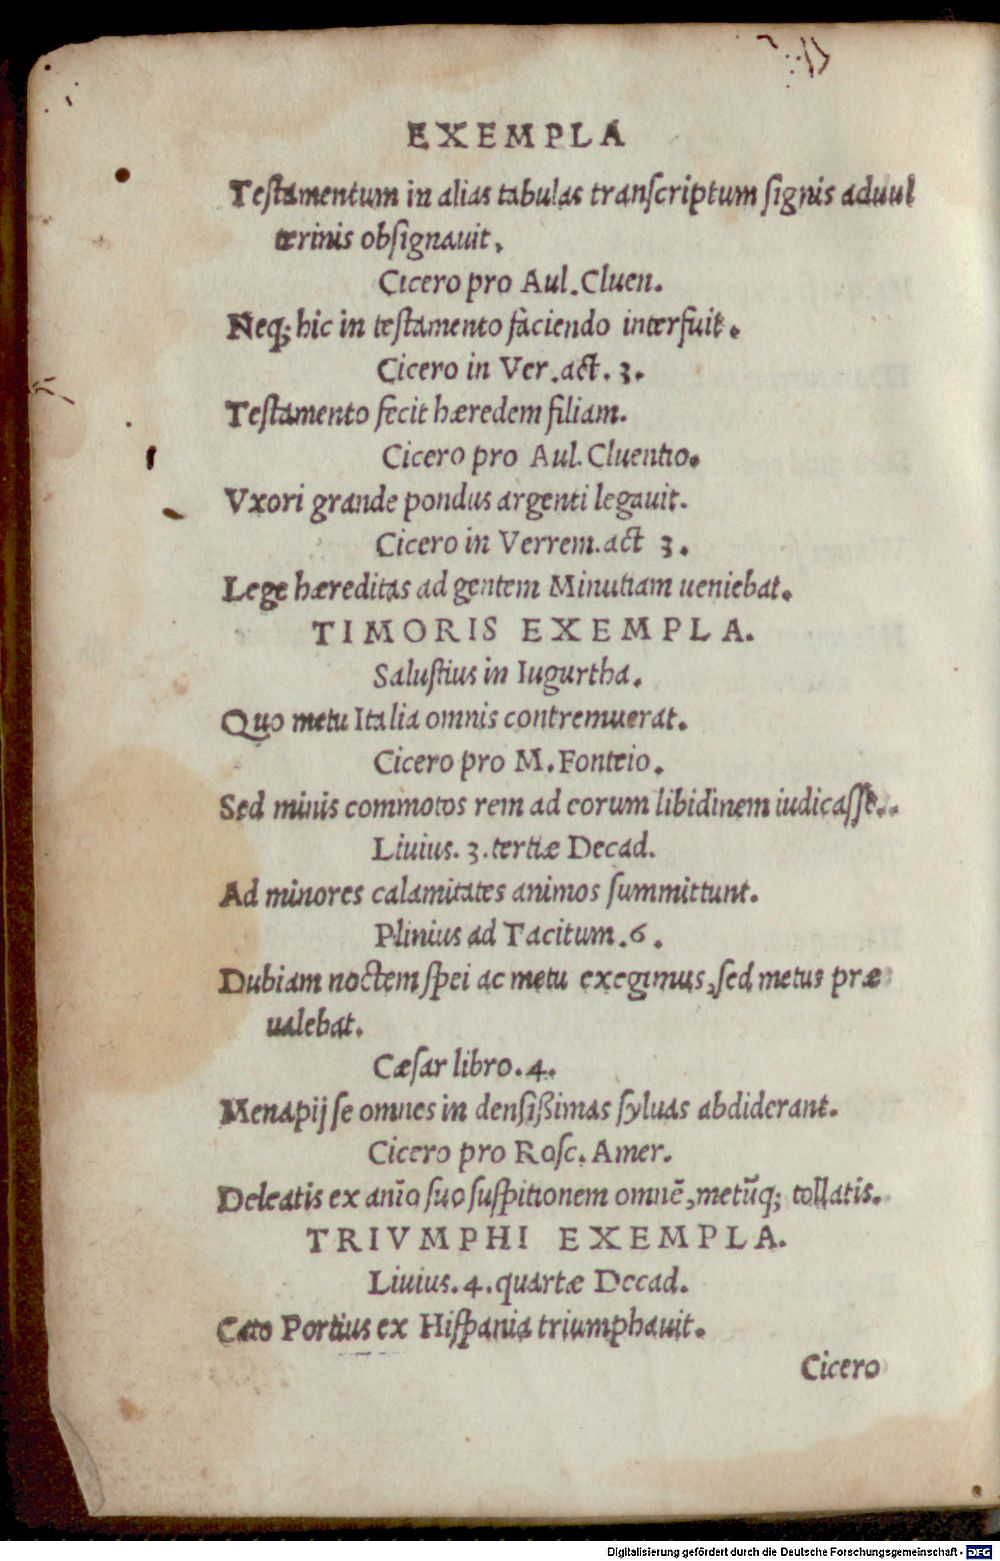 EXEMPLA
Teſtamentum in alias tabulas tranſcriptum ſignis aduul
terinis obſignauit.
Cicero pro Aul. Cluen.
Neq; hic in teſtamento faciendo interfuit.
Cicero in Ver. act. 3.
Teſtamento fecit hæredem filiam.
Cicero pro Aul. Cluentio.
Vxori grande pondus argenti legauit.
Cicero in Verrem. act 3.
Lege hæreditas ad gentem Minutiam ueniebat.
TIMORIS EXEMPLA.
Saluſtius in Iugurtha.
Quo metu Italia omnis contremuerat.
Cicero pro M. Fonteio.
Sed minis commotos rem ad eorum libidinem iudicaſſe.
Liuius. 3. tertiæ Decad.
Ad minores calamitates animos ſummittunt.
Plinius ad Tacitum. 6.
Dubiam noctem ſpei ac metu exegimus, ſed metus præ
ualebat.
Cæſar libro. 4.
Menapij ſe omnes in denſißimas ſyluas abdiderant.
Cicero pro Roſc. Amer.
Deleatis ex aĩo ſuo ſuſpitionem omnẽ, metũq; tollatis.
TRIVMPHI EXEMPLA.
Liuius. 4. quartæ Decad.
Cato Portius ex Hiſpania triumphauit.
Cicero
Digitalisierung gefördert durch die Deutsche Forschungsgemeinschaft - DFG